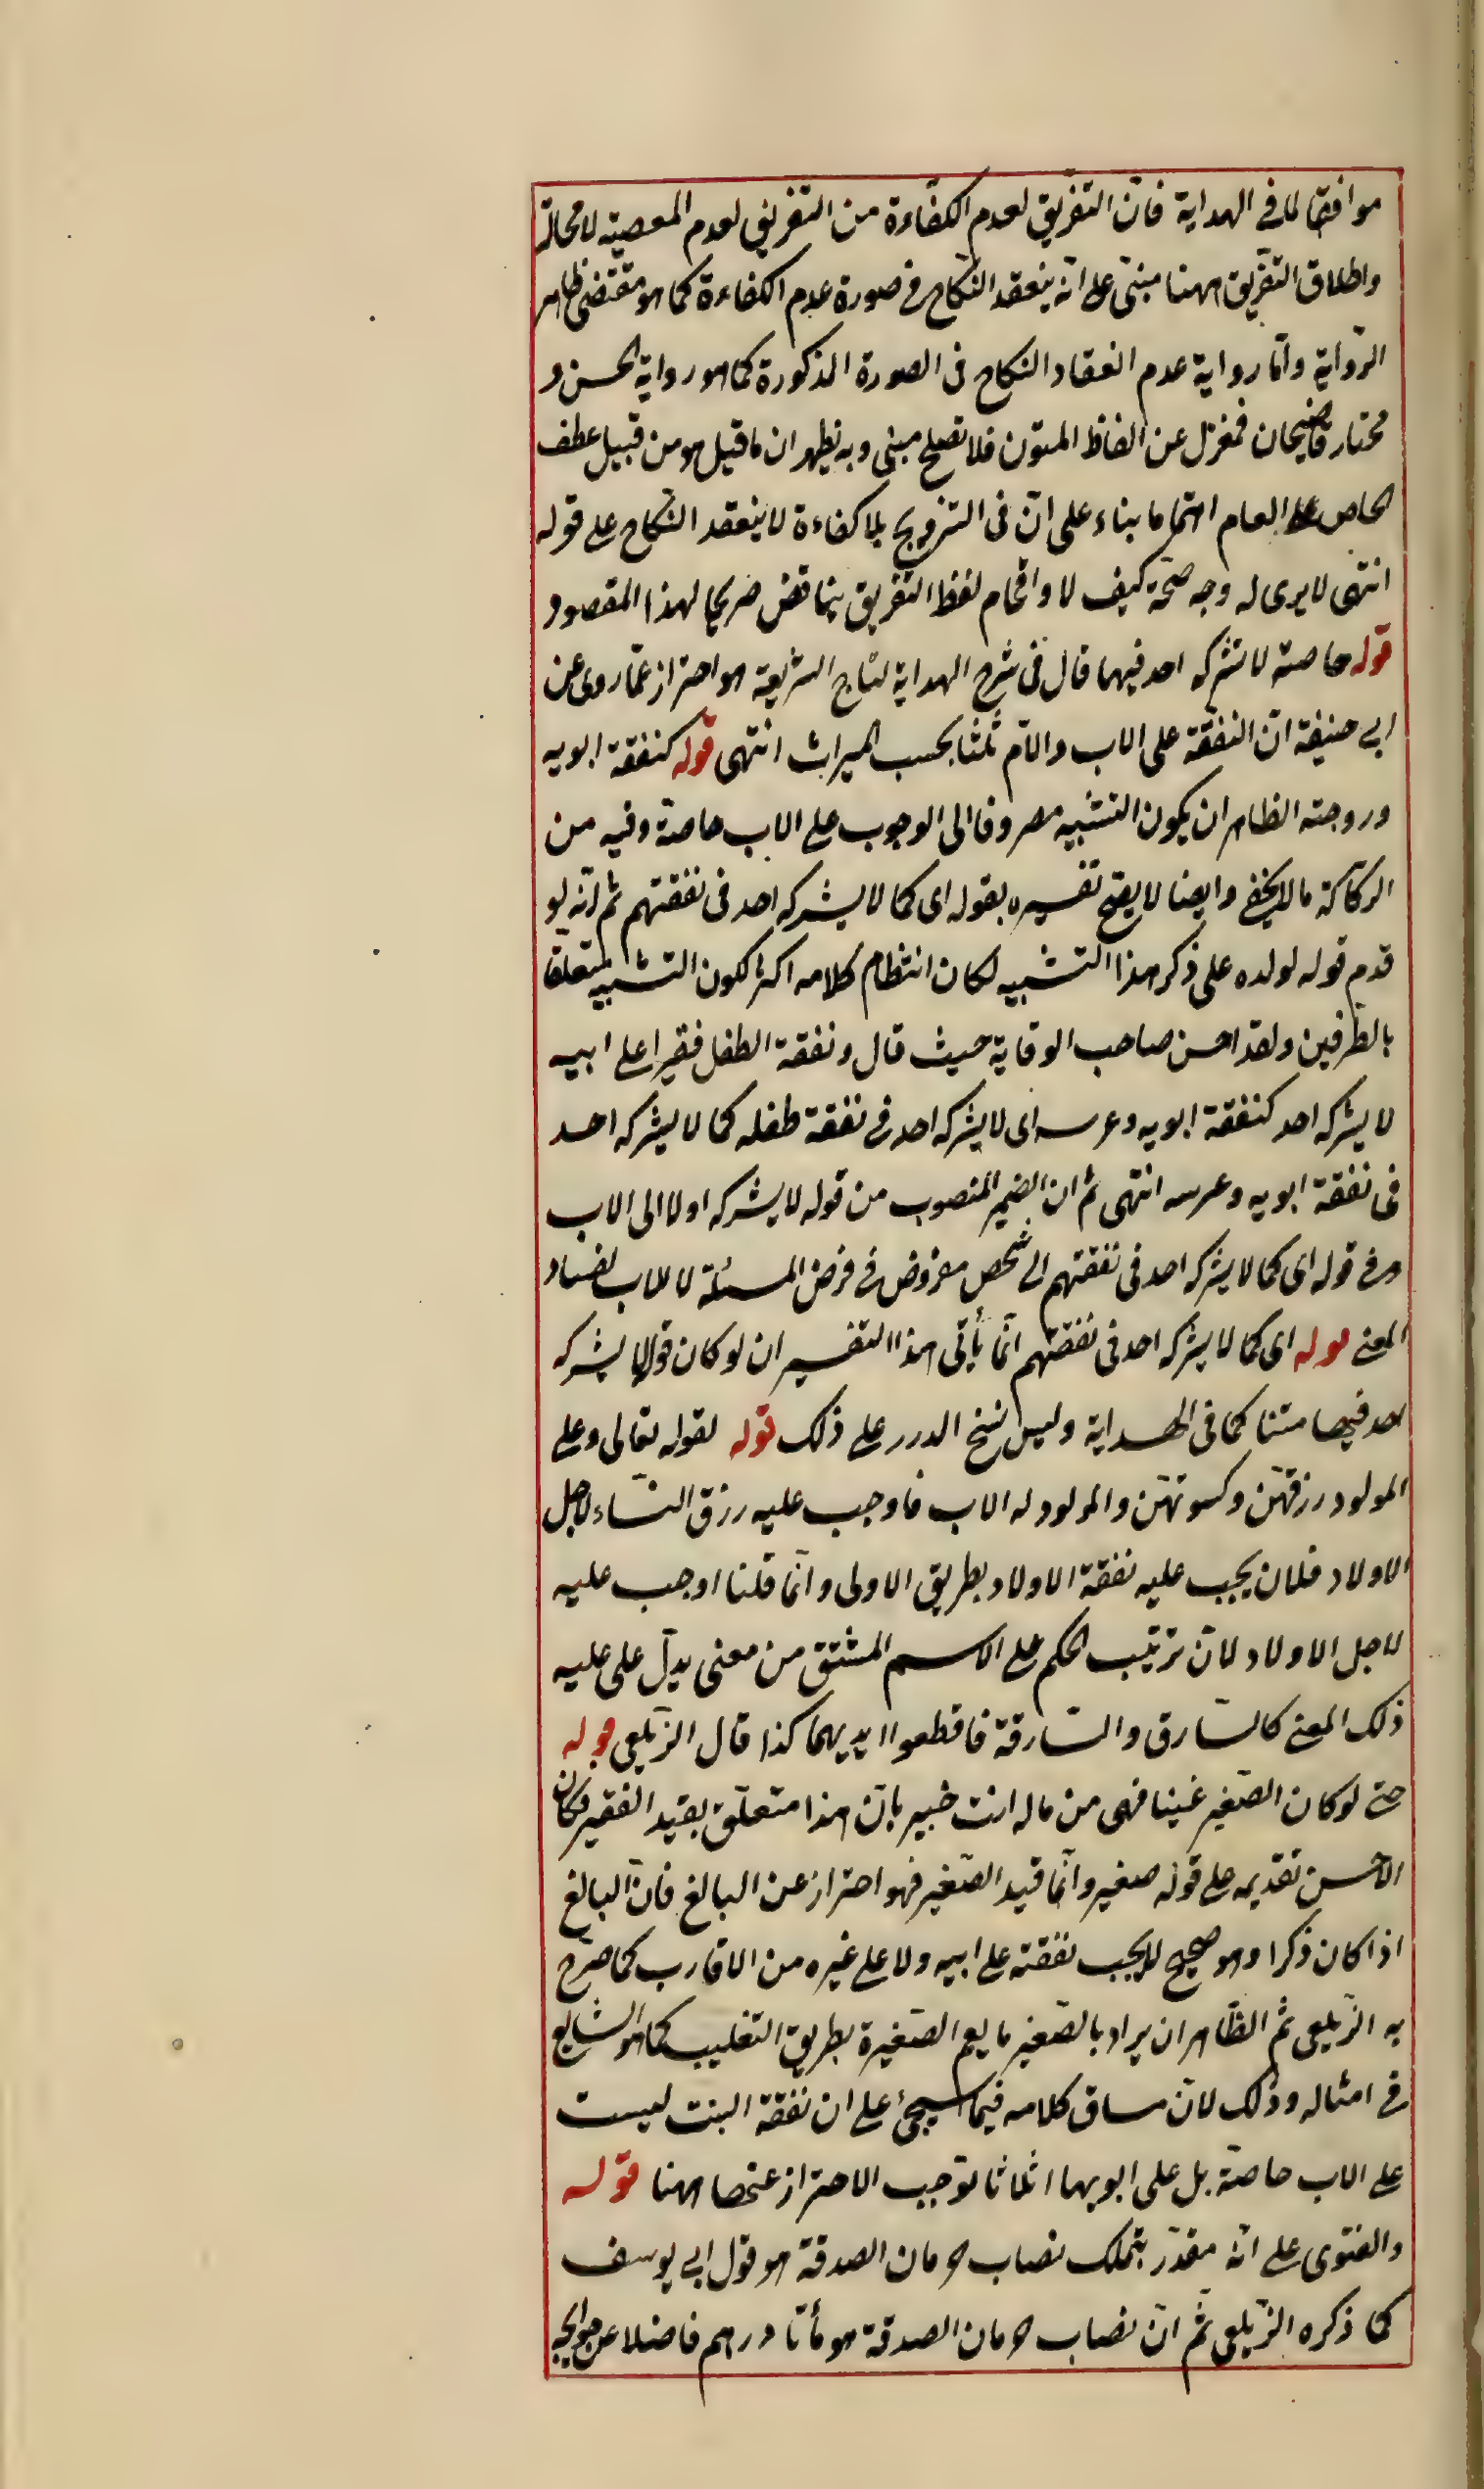 موافقا لما فى الهداية فان التفريق لعدم الكفاءة من التفريق لعدم المعصية لا محالة
واطلاق التفريق ههنا مبنى على انه ينعقد النكاح فى صورة عدم الكفاءة كما هو مقتضى ظاهر
الرواية واما رواية عدم انعقاد النكاح فى الصورة المذكورة كما هو رواية الحسن و
مختار قاضيخان فمعزل عن الفاظ المتون فلا تصلح مبنى وبه يظهر ان ما قيل هو من قبيل عطف
الخاص على العام اهتماما بناء على ان فى التزويج بلا كفاءة لا ينعقد النكاح على قوله
انتهى لا يرى له وجه صحة كيف لا واقحام لفظ التفريق يناقض صريحا لهذا المقصود
قوله خاصة لا يشركه احد فيهما قال فى شرح الهداية لتاج الشريعة هو احتراز عما روى عن
ابى حنيفة ان النفقة على الاب والام ثلثا بحسب الميراث انتهى قوله كنفقة ابويه
وزوجته الظاهر ان يكون التشبيه مصروفا الى الوجوب على الاب خاصة وفيه من
الركاكة ما لا يخفى وايضا لا يصح تفسيره بقوله اى كما لا يشركه احد فى نفقتهم ثم انه لو
قدم قوله لولده على ذكر هذا التشبيه لكان انتظام كلامه اكثر لكون التشبيه متعلقا
بالطرفين ولقد احسن صاحب الوقاية حيث قال ونفقة الطفل فقيرا على ابيه
لا يشركه احد كنفقة ابويه وعرسه اى لا يشركه احد فى نفقة طفله كما لا يشركه احد
فى نفقة ابويه وعرسه انتهى ثم ان الضمير المنصوب من قوله لا يشركه اولا الى الاب
وفى قوله اى كما لا يشركه احد فى نفقتهم الى شخص مفروض فى فرض المسئلة لا للاب لفساد
المعنى قوله اى كما لا يشركه احد فى نفقتهم انما يأتى هذا التفسير ان لو كان قوله لا يشركه
احد فيها متنا كما فى الهداية وليس نسخ الدرر على ذلك قوله لقوله تعالى وعلى
المولود رزقهن وكسوتهن والمولود له الاب فاوجب عليه رزق النساء لاجل
الاولاد فلان يجب عليه نفقة الاولاد بطريق الاولى وانما قلنا اوجب عليه
لاجل الاولاد لان ترتيب الحكم على الاسم المشتق من معنى يدل على علية
ذلك المعنى كالسارق والسارقة فاقطعوا ايديهما كذا قال الزيلعى قوله
حتى لو كان الصغير غنيا فهى من ماله انت خبير بان هذا متعلق بقيد الفقير فكان
الاحسن تقديمه على قوله صغير وانما قيد الصغير فهو احتراز عن البالغ فان البالغ
اذا كان ذكرا وهو صحيح لا يجب نفقته على ابيه ولا على غيره من الاقارب كما صرح
به الزيلعى ثم الظاهر ان يراد بالصغير ما يعم الصغيرة بطريق التغليب كما هو الشايع
فى امثاله وذلك لان مساق كلامه فيما سيجئ على ان نفقة البنت ليست
على الاب خاصة بل على ابويها اثلاثا توجب الاحتراز عنها ههنا قوله
والفتوى على انه مقدر بتملك نصاب حرمان الصدقة هو قول ابى يوسف
كما ذكره الزيلعى ثم ان نصاب حرمان الصدقة هو مأتا درهم فاضلا عن حوايجه